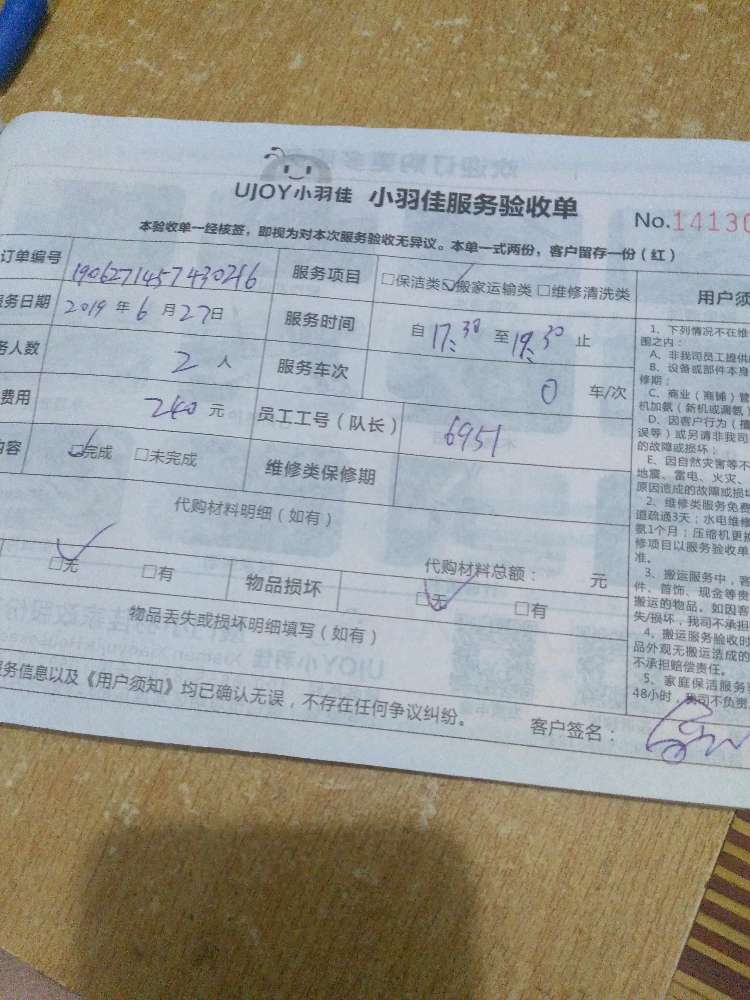 UJOY小羽佳 小羽佳服务验收单
No.14130
本验收单一经核签，即视为对本次服务验收无异议。本单一式两份，客户留存一份（红）
订单编号 190627145743026 服务项目 □保洁类☑搬家运输类□维修清洗类
务日期 2019 年 6 月 27 日 服务时间 自 17:30 至 19:30 止
务人数 2 人 服务车次 0 车/次
费用 240 元 员工工号（队长） 6951
内容 ☑完成 □未完成 维修类保修期
代购材料明细（如有）
代购材料总额： 元
☑无 □有 物品损坏 ☑无 □有
物品丢失或损坏明细填写（如有）
服务信息以及《用户须知》均已确认无误，不存在任何争议纠纷。
客户签名：
用户须
1、下列情况不在维
围之内：
A、非我司员工提供的
B、设备或部件本身
修期；
C、商业（商铺）管
机加氨（新机或漏氨）
D、因客户行为（擅
误等）或另请非我司
的故障或损坏；
E、因自然灾害等不
地震、雷电、火灾、
原因造成的故障或损坏
2、维修类服务免费
道疏通3天；水电维修
氨1个月；压缩机更换
修项目以服务验收单
准。
3、搬运服务中，客
件、首饰、现金等贵
搬运的物品。如因客
失/损坏，我司不承担
4、搬运服务验收时
品外观无搬运造成的
不承担赔偿责任。
5、家庭保洁服务
48小时，我司不负责